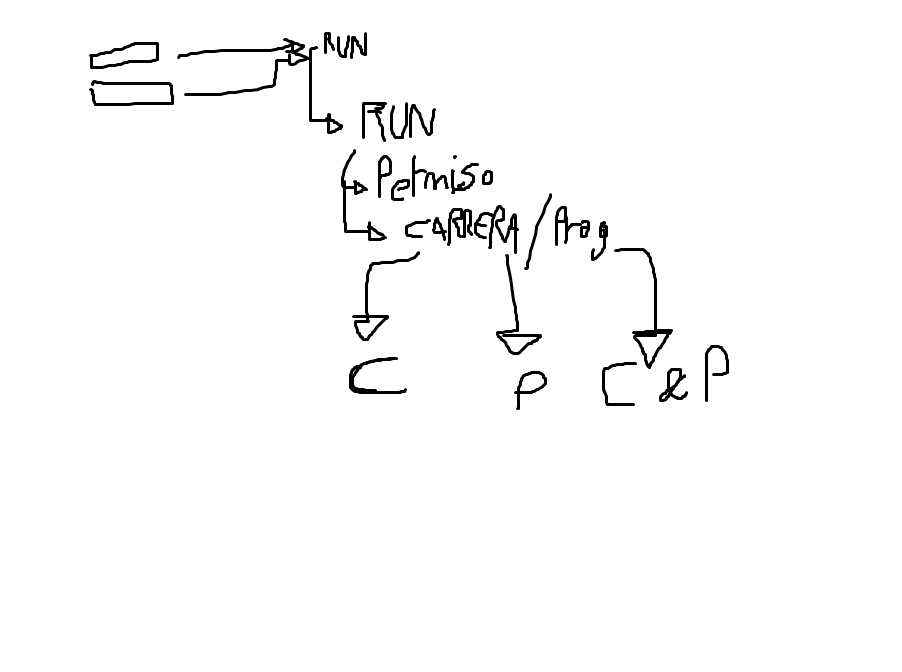 RUN
RUN
Permiso
CARRERA/Prog
C P C & P